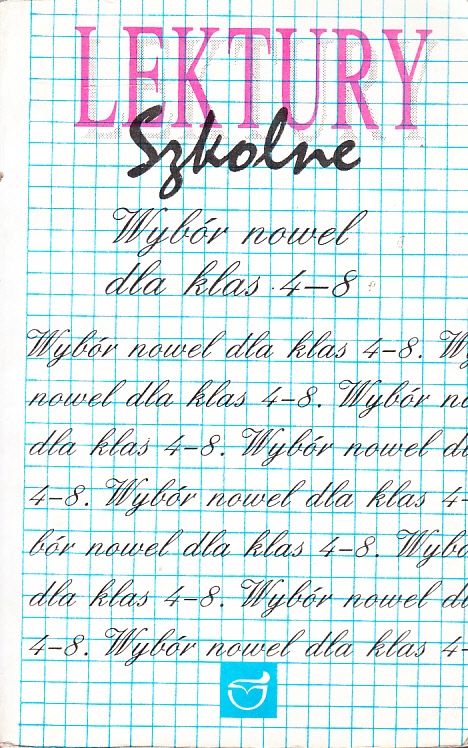 LEKTURY
Szkolne
Wybór nowel
dla klas 4–8
Wybór nowel dla klas 4–8. Wy
nowel dla klas 4–8. Wybór no
dla klas 4–8. Wybór nowel dl
4–8. Wybór nowel dla klas 4–
bór nowel dla klas 4–8. Wybó
dla klas 4–8. Wybór nowel dl
4–8. Wybór nowel dla klas 4–